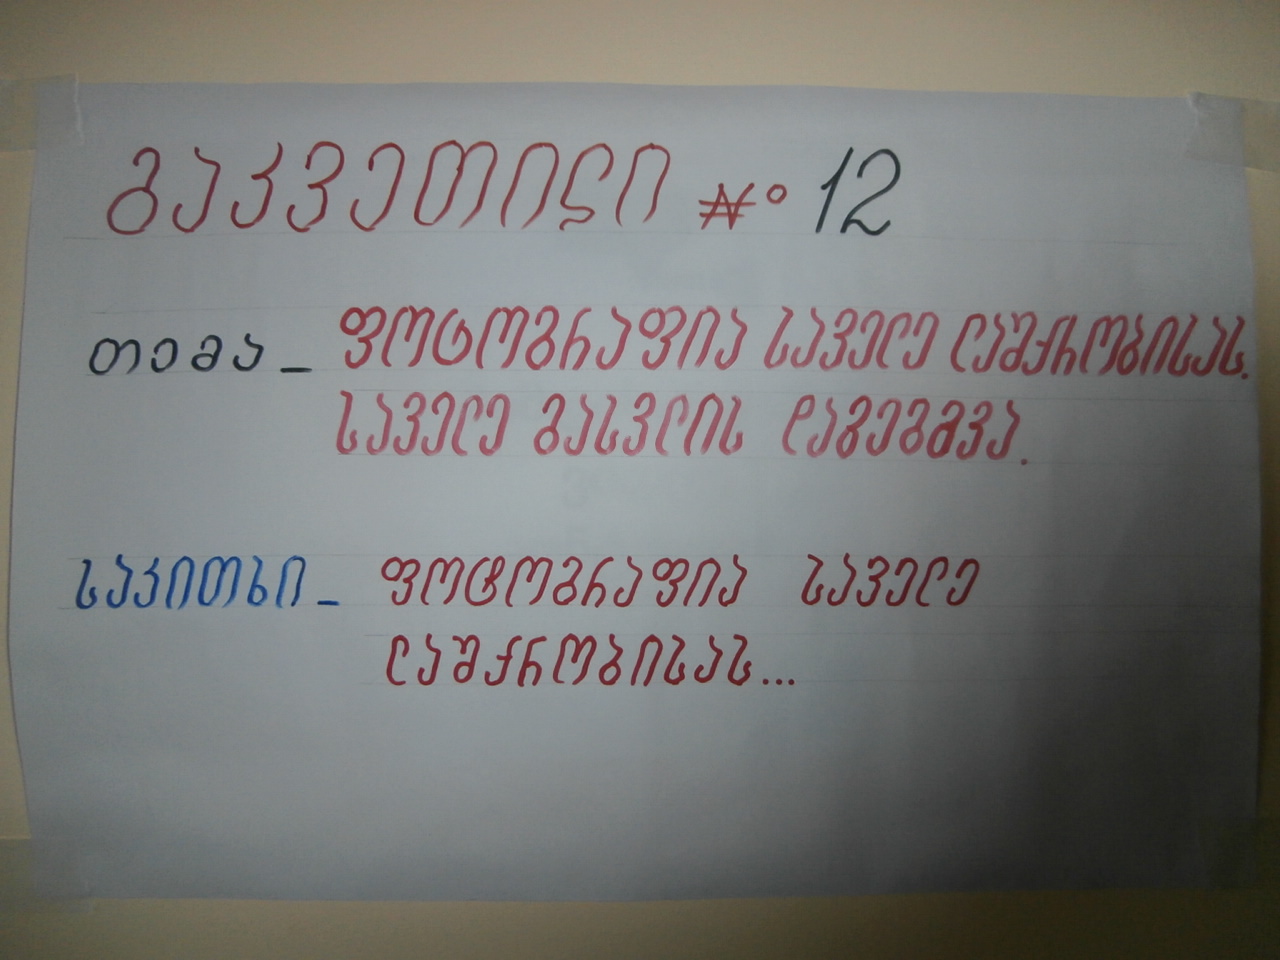 გაკვეთილი № 12
თემა – ფოტოგრაფია საველე ლაშქრობისას.
საველე გასვლის დაგეგმვა.
საკითხი – ფოტოგრაფია საველე
ლაშქრობისას...